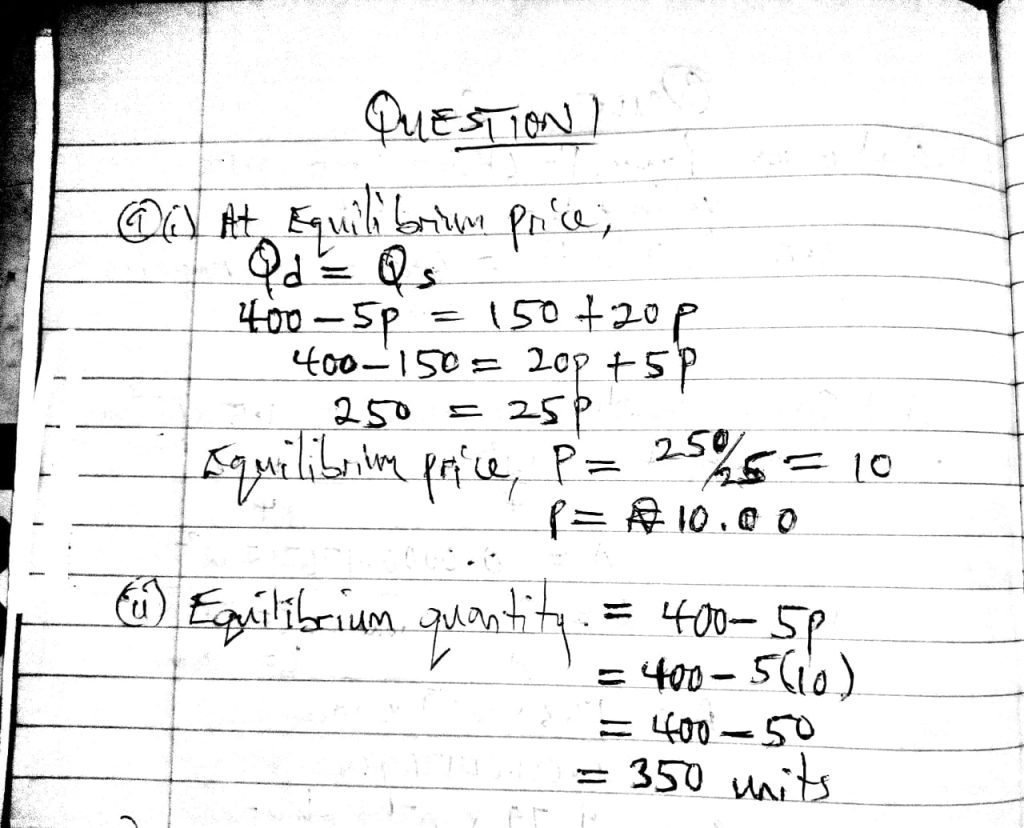 QUESTION 1
①(i) At Equilibrium price,
Qd = Qs
400 – 5p = 150 + 20p
400 – 150 = 20p + 5p
250 = 25p
Equilibrium price, P = 250/25 = 10
P = ₦10.00
(ii) Equilibrium quantity = 400 – 5p
= 400 – 5(10)
= 400 – 50
= 350 units